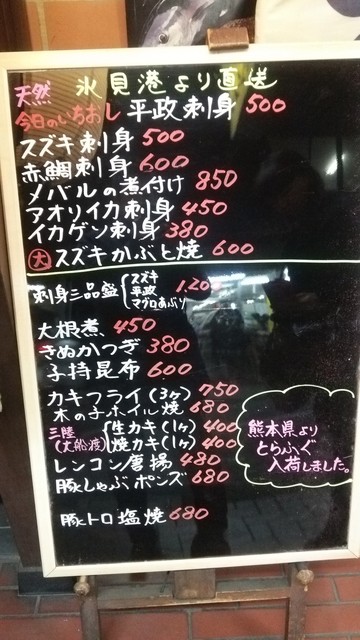 天然 氷見港より直送
今日のいちおし 平政刺身 500
スズキ刺身 500
赤鯛刺身 600
メバルの煮付け 850
アオリイカ刺身 450
イカゲソ刺身 380
大 スズキかぶと焼 600
刺身三品盛 スズキ 平政 マグロあぶり 1.200
大根煮 450
きぬかつぎ 380
子持昆布 600
カキフライ(3ヶ) 750
木の子ホイル焼 680
三陸(大船渡) 生カキ(1ヶ) 400
焼カキ(1ヶ) 400
レンコン唐揚 480
豚しゃぶポンズ 680
豚トロ塩焼 680
熊本県より
とらふぐ
入荷しました。